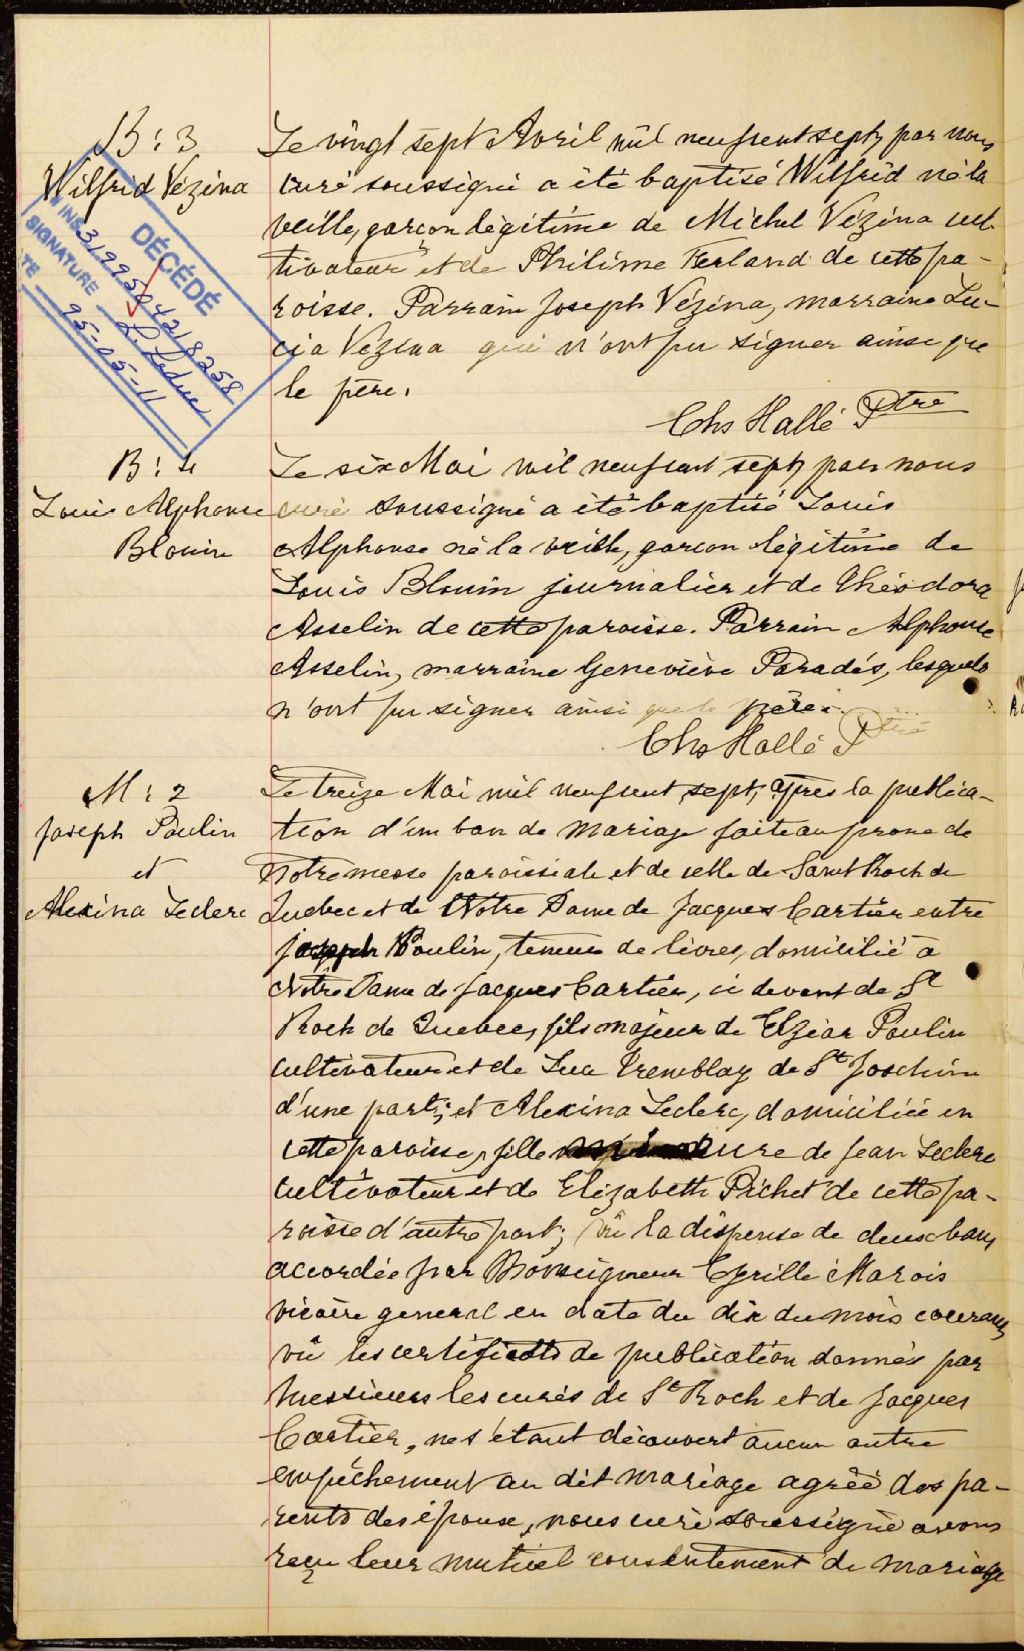 B: 3
Wilfrid Vézina
DÉCÉDÉ
SIGNATURE
L. Leduc
95-05-11
Le vingt sept Avril mil neuf cent sept, par nous
curé soussigné a été baptisé Wilfrid né la
veille, garçon légitime de Michel Vézina cul-
tivateur et de Philime Ferland de cette pa-
roisse. Parrain Joseph Vézina, marraine Lu-
cia Vézina qui n'ont pu signer ainsi que
le père.
Chs Hallé Ptre
B: 4
Louis Alphonse
Blouin
Le six Mai mil neuf cent sept, par nous
curé soussigné a été baptisé Louis
Alphonse né la veille, garçon légitime de
Louis Blouin journalier et de Théodora
Asselin de cette paroisse. Parrain Alphonse
Asselin, marraine Geneviève Paradis, lesquels
n'ont pu signer ainsi que le père.
Chs Hallé Ptre
M: 2
Joseph Poulin
et
Alexina Leclerc
Le treize Mai mil neuf cent sept, après la publica-
tion d'un ban de mariage faite au prone de
notre messe paroissiale et de celle de Saint Roch de
Quebec et de Notre Dame de Jacques Cartier entre
Joseph Poulin, teneur de livres, domicilié à
Notre Dame de Jacques Cartier, ci devant de St
Roch de Quebec, fils majeur de Elzéar Poulin
cultivateur et de Luce Tremblay de St Joachim
d'une part; et Alexina Leclerc, domiciliée en
cette paroisse, fille de Jean Leclerc
cultivateur et de Elizabeth Pichet de cette pa-
roisse d'autre part; vû la dispense de deux bans
accordée par Monseigneur Cyrille Marois
vicaire general en date du dix du mois courant,
vû les certificats de publication donnés par
Messieurs les curés de St Roch et de Jacques
Cartier, ne s'étant découvert aucun autre
empêchement au dit mariage agréé des pa-
rents des épouse, nous curé soussigné avons
reçu leur mutuel consentement de mariage